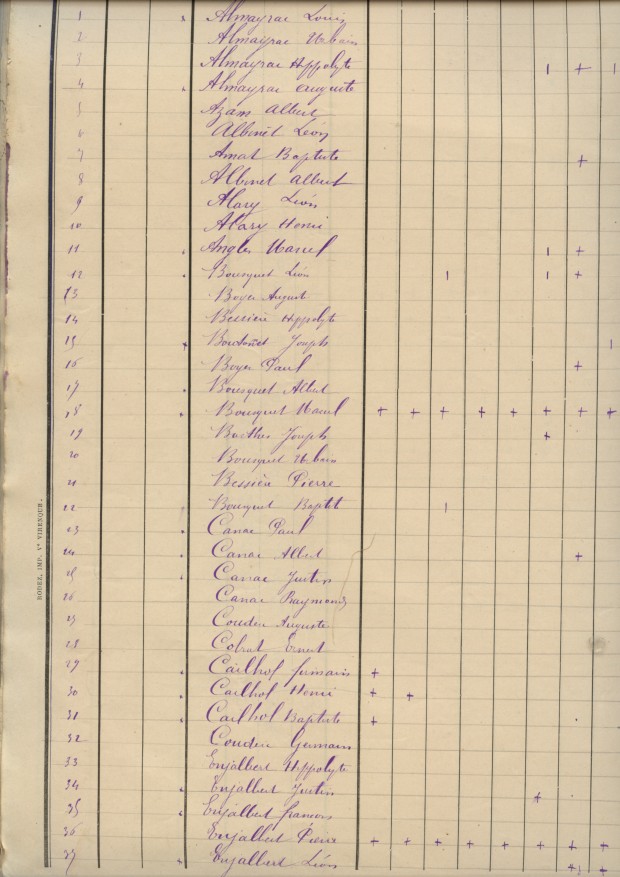 1 Almayrac Louis
2 Almayrac Urbain
3 Almayrac Hippolyte | + |
4 Almayrac Auguste
5 Azam Albert
6 Albinet Léon
7 Amat Baptiste +
8 Albinet Albert
9 Alary Léon
10 Alary Henri
11 Angles Marcel | +
12 Bousquet Léon | | +
13 Boyer Auguste
14 Bessière Hippolyte
15 Joseph |
16 Boyer Paul +
17 Bousquet Albert
18 Bousquet Marcel + + + + + + + +
19 Barthes Joseph +
20 Bousquet Urbain
21 Bessière Pierre
22 Bousquet Baptist |
23 Canac Paul
24 Canac Albert +
25 Canac Justin
26 Canac Raymond
27 Couderc Auguste
28 Colrat Ernest
29 Cailhol Jumain +
30 Cailhol Henri + +
31 Cailhol Baptiste +
32 Couderc Germain
33 Enjalbert Hippolyte
34 Enjalbert Justin +
35 Enjalbert francois
36 Enjalbert Pierre + + + + + + + +
37 Enjalbert Léon + +
RODEZ, IMP. Vᵉ VIRENQUE.